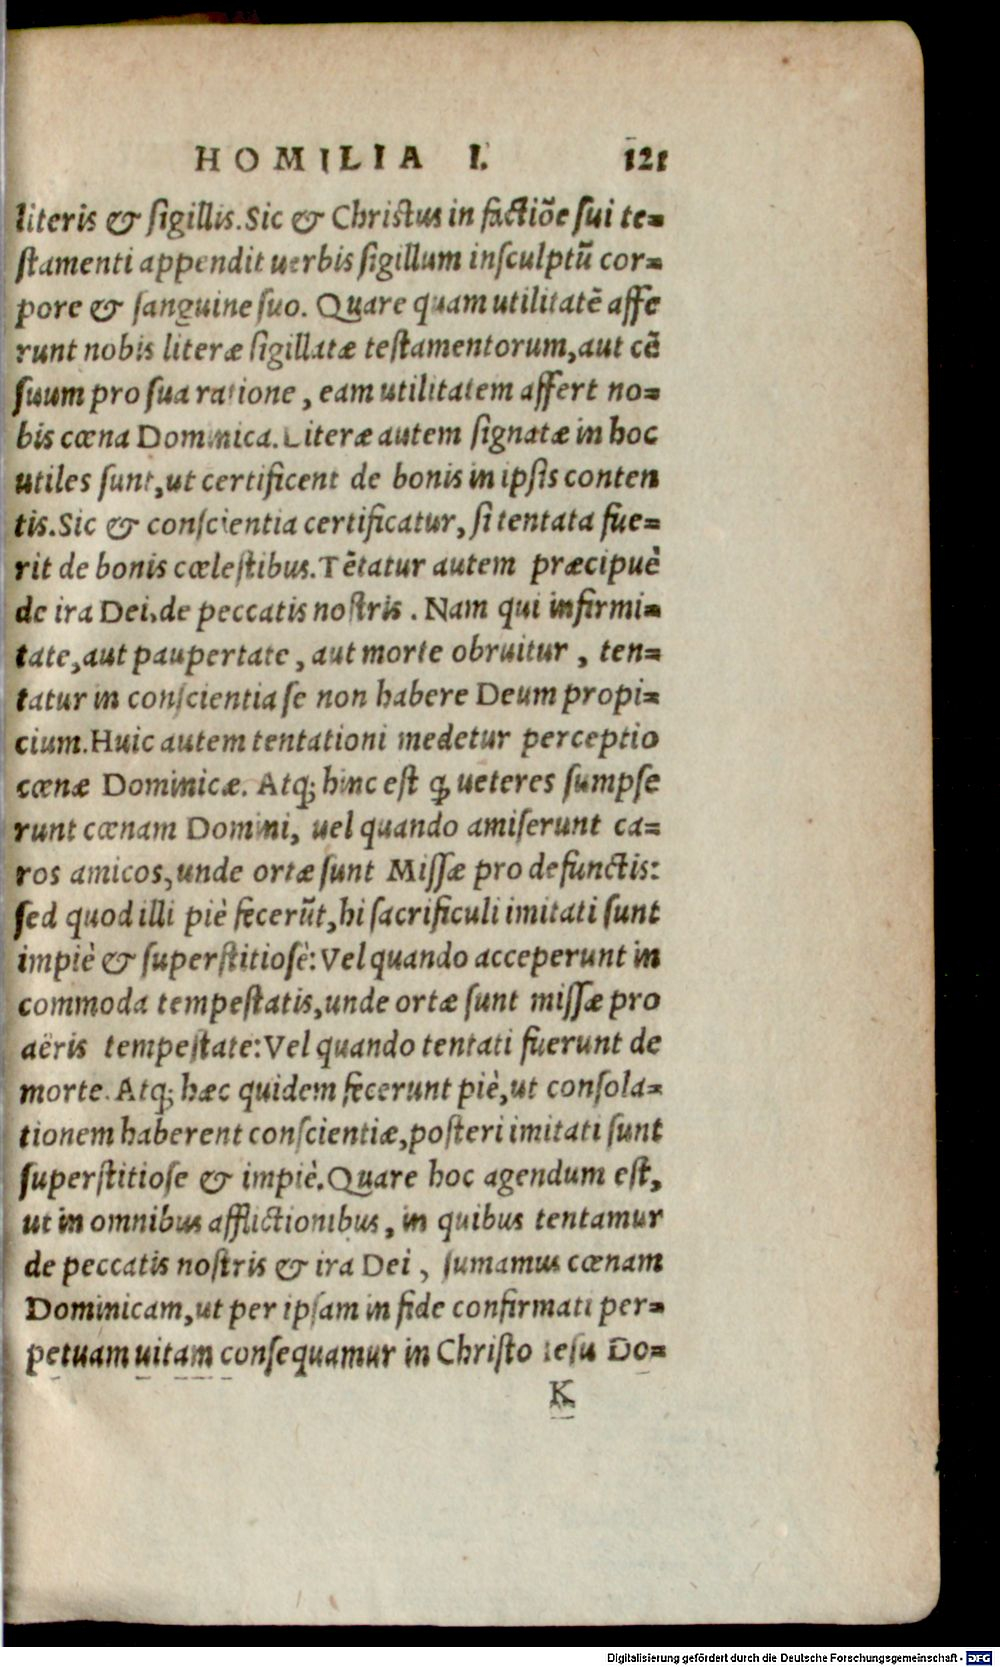 HOMILIA I. 121
literis & sigillis. Sic & Christus in factiõe sui te-
stamenti appendit uerbis sigillum insculptũ cor-
pore & sanguine suo. Quare quam utilitatẽ affe
runt nobis literæ sigillatæ testamentorum, aut cẽ
suum pro sua ratione, eam utilitatem affert no-
bis cœna Dominica. Literæ autem signatæ in hoc
utiles sunt, ut certificent de bonis in ipsis conten
tis. Sic & conscientia certificatur, si tentata fue-
rit de bonis cœlestibus. Tẽtatur autem præcipuè
de ira Dei, de peccatis nostris. Nam qui infirmi-
tate, aut paupertate, aut morte obruitur, ten-
tatur in conscientia se non habere Deum propi-
cium. Huic autem tentationi medetur perceptio
cœnæ Dominicæ. Atq; hinc est ꝙ ueteres sumpse
runt cœnam Domini, uel quando amiserunt ca-
ros amicos, unde ortæ sunt Missæ pro defunctis:
sed quod illi piè fecerũt, hi sacrificuli imitati sunt
impiè & superstitiosè: Vel quando acceperunt in
commoda tempestatis, unde ortæ sunt missæ pro
aëris tempestate: Vel quando tentati fuerunt de
morte. Atq; hæc quidem fecerunt piè, ut consola-
tionem haberent conscientiæ, posteri imitati sunt
superstitiose & impiè. Quare hoc agendum est,
ut in omnibus afflictionibus, in quibus tentamur
de peccatis nostris & ira Dei, sumamus cœnam
Dominicam, ut per ipsam in fide confirmati per-
petuam uitam consequamur in Christo Iesu Do-
K
Digitalisierung gefördert durch die Deutsche Forschungsgemeinschaft - DFG